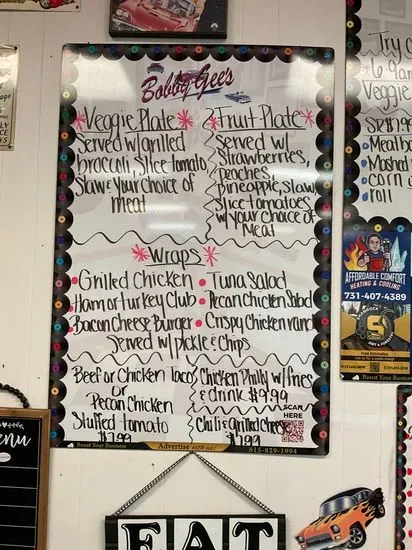 Bobby Gee's
Veggie Plate
Served w/grilled
broccoli, slice tomato,
slaw & your choice of
meat
Fruit Plate
Served w/
strawberries,
peaches,
pineapple, slaw
slice tomatoes
w/your choice of
meat
Wraps
Grilled Chicken
Tuna Salad
Ham or Turkey Club
Pecan Chicken Salad
Bacon Cheese Burger
Crispy Chicken ranch
Served w/ pickle & Chips
Beef or Chicken taco
or
Pecan Chicken
Stuffed tomato
Chicken Philly w/fries
& drink $9.99
Chili & grilled cheese
SCAN
HERE
Boost Your Business
Advertise with us!
615-829-1994
Try
Veggie
AFFORDABLE COMFORT
HEATING & COOLING
731-407-3889
Free Estimates
Boost Your Business
Menu
EAT